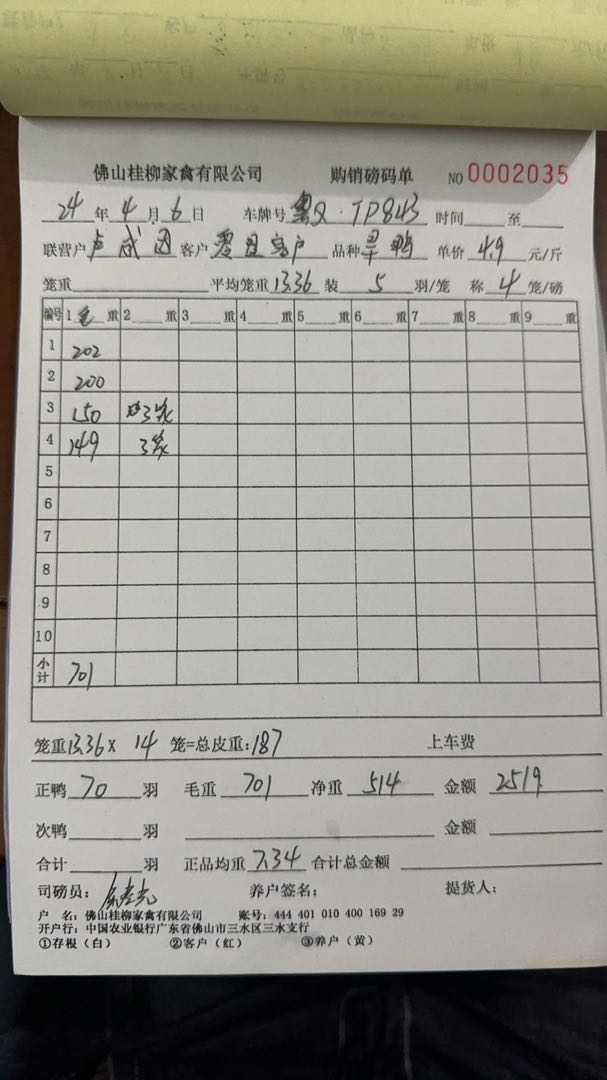 佛山桂柳家禽有限公司 购销磅码单 NO 0002035
24 年 4 月 6 日 车牌号 TP843 时间 至
联营户 卢成团 客户 零星客户 品种 旱鸭 单价 4.9 元/斤
笼重 平均笼重 13.36 装 5 羽/笼 称 4 笼/磅
编号 1 毛 重 2 重 3 重 4 重 5 重 6 重 7 重 8 重 9 重
1 202
2 200
3 150 3笼
4 149 3笼
5
6
7
8
9
10
小计 701
笼重 13.36 X 14 笼=总皮重: 187 上车费
正鸭 70 羽 毛重 701 净重 514 金额 2519
次鸭 羽 金额
合计 羽 正品均重 7.34 合计总金额
司磅员: 养户签名: 提货人:
户 名: 佛山桂柳家禽有限公司 账号: 444 401 010 400 169 29
开户行: 中国农业银行广东省佛山市三水区三水支行
①存根（白） ②客户（红） ③养户（黄）